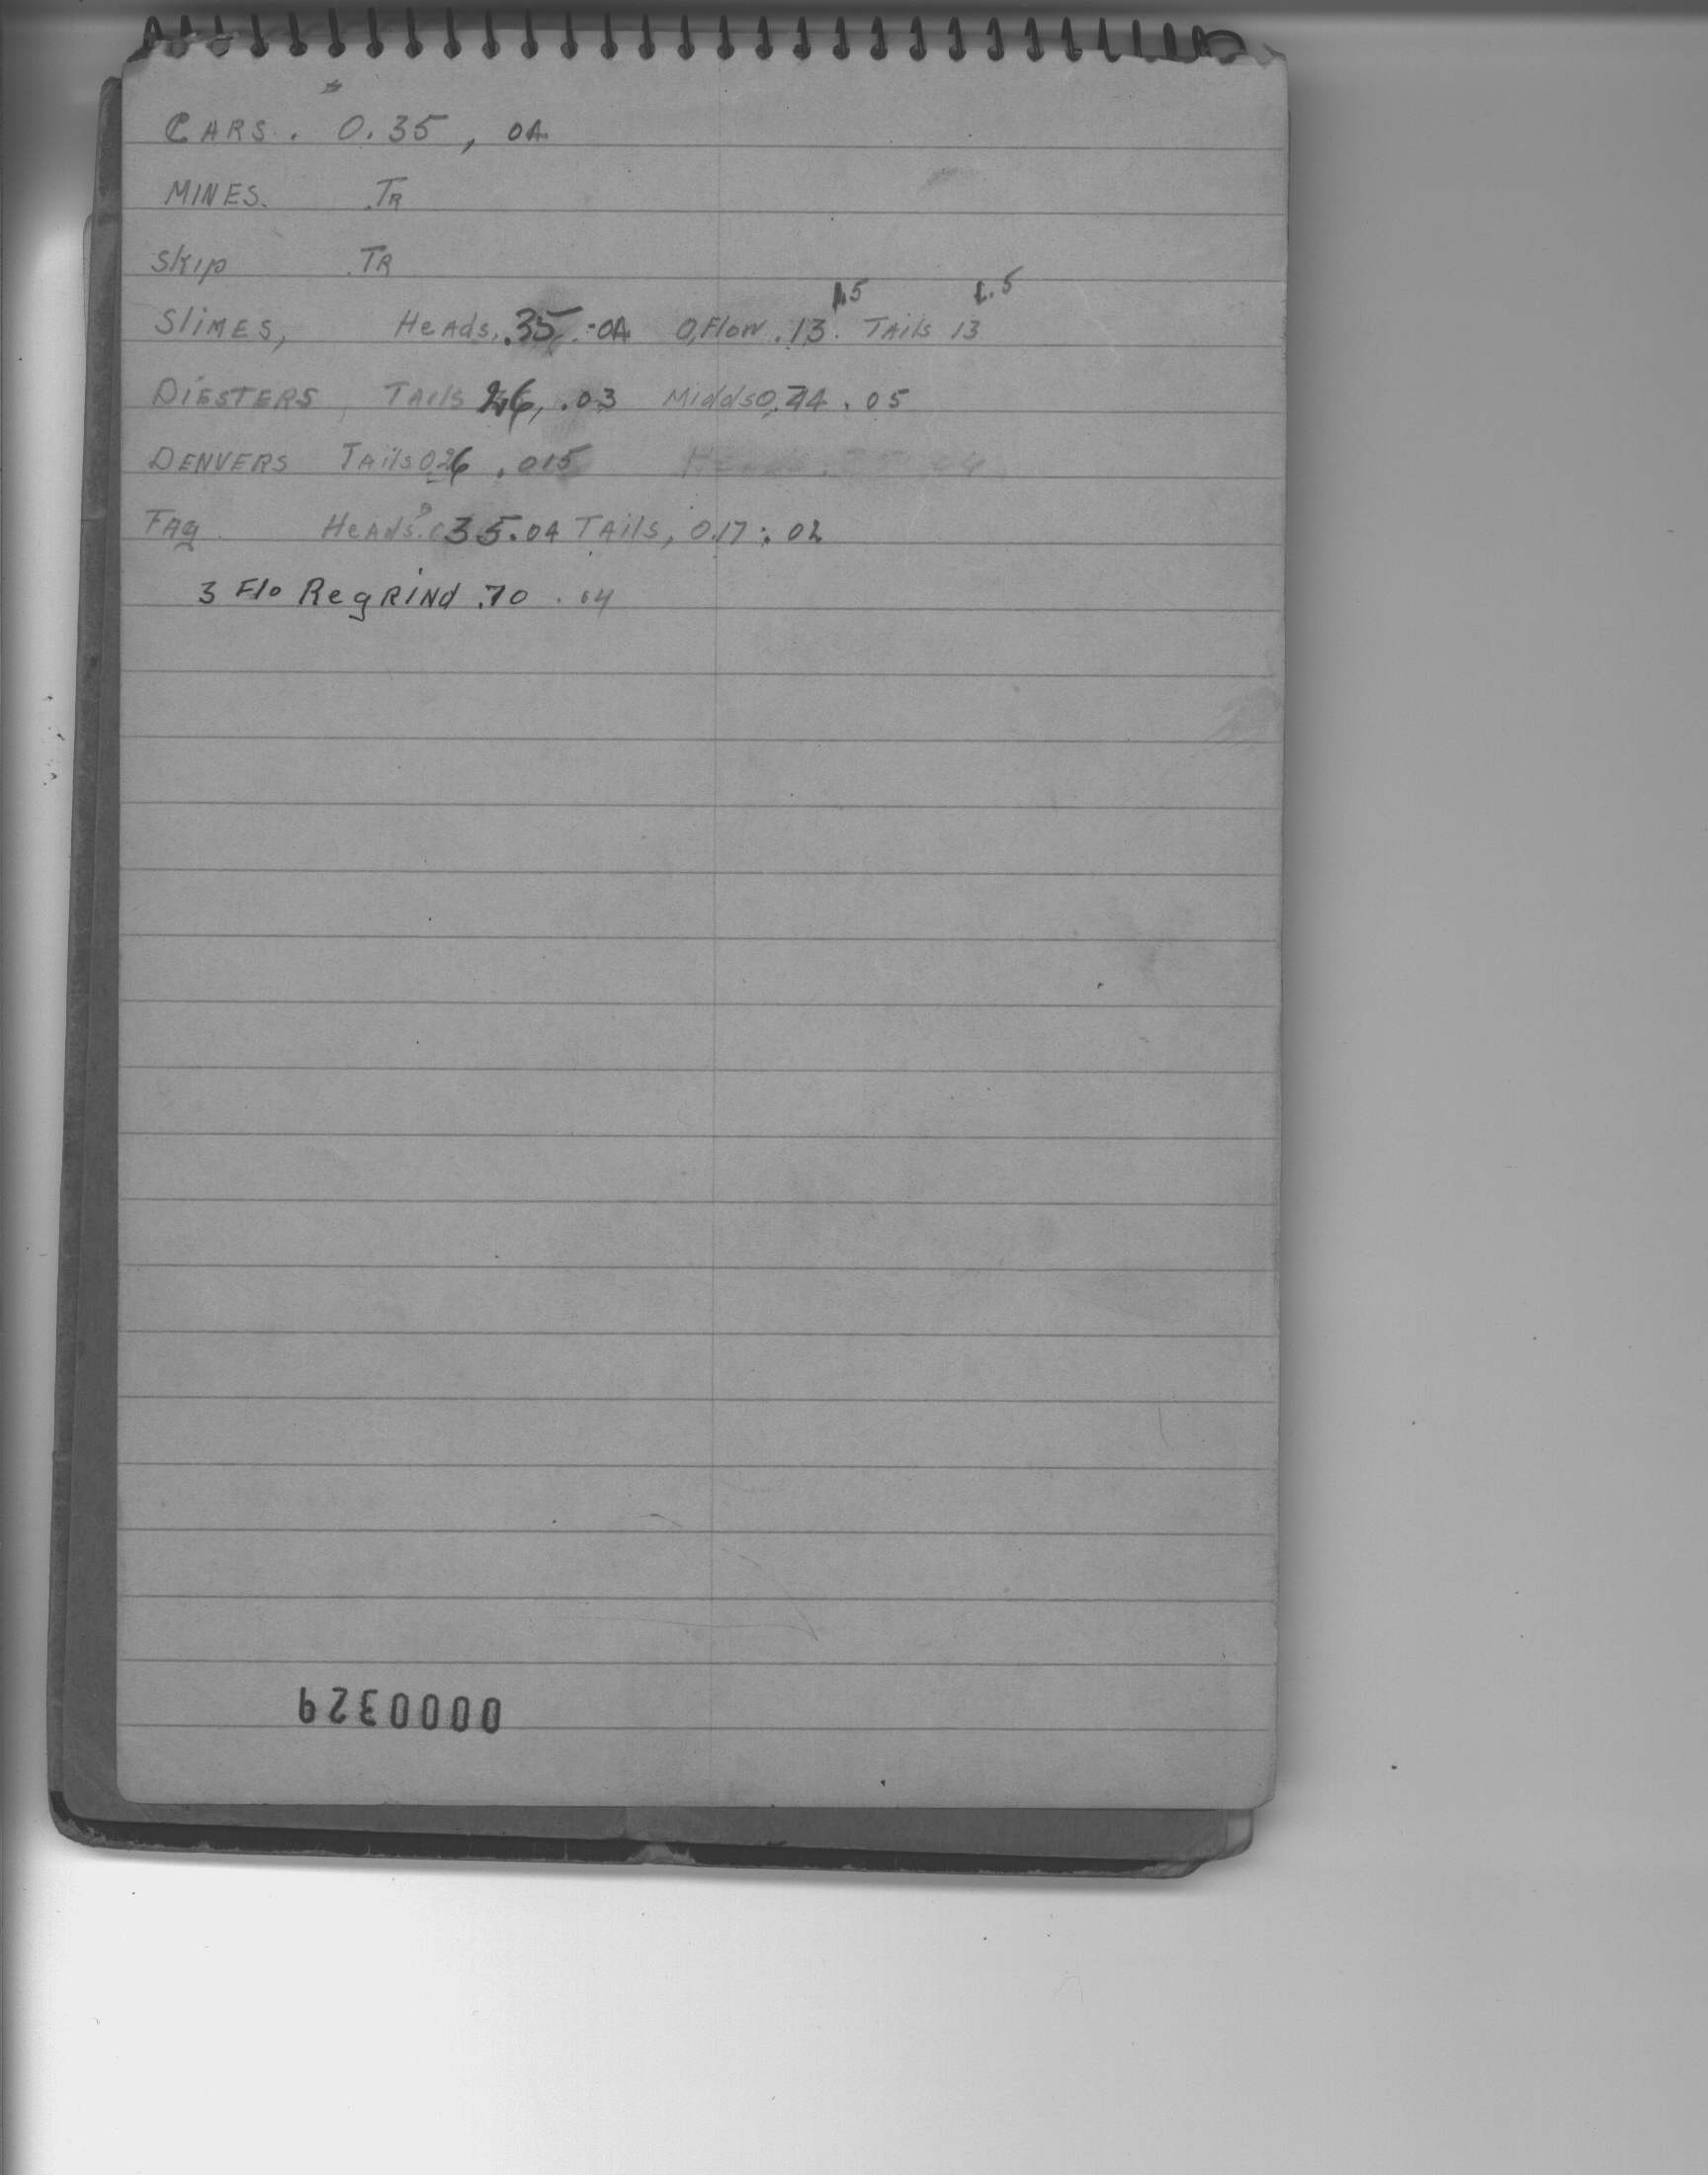 CARS. 0.35, 04
MINES. .TR
Skip .TR
1.5 1.5
SLIMES, HeAds, .35, .04 O,Flow .13. TAils 13
DiESTERS, TAils 26, .03 Midds 0.44 .05
DENVERS TAils 026 .015
FAg. HeAds. 035.04 TAils, 0.17 : 02
3 Flo RegRiNd .70 .04
0000329